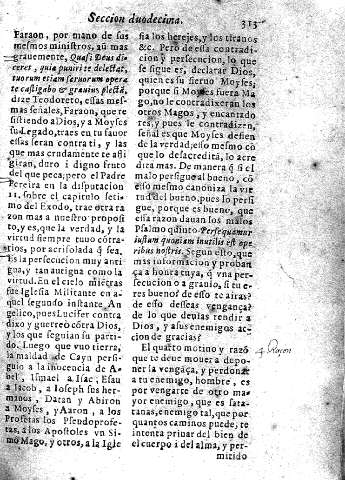 Seccion duodecima. 313
Faraon, por mano de sus
mesmos ministros, aũ mas
grauemente, Quasi Deus di-
ceret, quia puniri te delectat,
tuorum etiam seruorum opera
te castigabo & grauius plectã,
dize Teodoreto, essas mes-
mas señales, Faraon, que re-
sistiendo a Dios, y a Moyses
su Legado, traes en tu fauor
essas seran contra ti, y las
que mas crudamente te afli
giran, duro i digno fruto
del que peca; pero el Padre
Pereira en la disputacion
11. sobre el capitulo seti-
mo del Exodo, trae otra ra
zon mas a nuestro proposi
to, y es, que la verdad, y la
virtud siempre tuuo cõtra-
rios, por acrisolada q̃ sea.
Es la persecucion muy anti
gua, y tan antigua como la
virtud. En el cielo mientras
fue Iglesia Militante en a-
quel segundo instante, An
gelico, pues Lucifer contra
dixo y guerreò cõtra Dios,
y los que seguian su parti-
do. Luego que vuo tierra,
la maldad de Cayn persi-
guio a la inocencia de A-
bel, Ismael a Isac, Esau
a Iacob, a Ioseph sus her-
manos, Datan y Abiron
a Moyses, y Aaron, a los
Profetas los Pseudoprofe-
tas, a los Apostoles vn Si-
mo Mago, y otros, a la Igle
sia los herejes, y los tiranos
&c. Pero de essa contradi-
cion y persecucion, lo que
se sigue es, declarar Dios,
quien es su sieruo Moyses;
porque si Moyses fuera Ma
go, no le contradixeran los
otros Magos, y encantado
res, y pues le contradizen,
señal es que Moyses defien
de la verdad; esso mesmo cõ
que lo desacredita, lo acre
dita mas. De manera q̃ si el
malo persigue al bueno, cõ
esso mesmo canoniza la vir
tud del bueno, pues lo persi
gue, porque es bueno, que
essa razon dauan los malos
Psalmo quinto Persequamur
iustum quoniam inutilis est ope
ribus nostris. Segun esto, que
mas informacion y prouan
ça a honra tuya, q̃ vna per-
secucion o agrauio, si tu e-
res bueno? de esso te airas?
de esso deseas vengança?
de lo que deuias rendir a
Dios, y a sus enemigos ac-
cion de gracias?
El quarto motiuo y razõ
que te deue mouer a depo-
ner la vengãça, y perdonar
a tu enemigo, hombre, es
por vengarte de otro ma-
yor enemigo, que es sa-
tanas, enemigo tal, que por
quantos caminos puede, te
intenta priuar del bien de
el cuerpo i del alma, y per-
mitido
4. Raçon